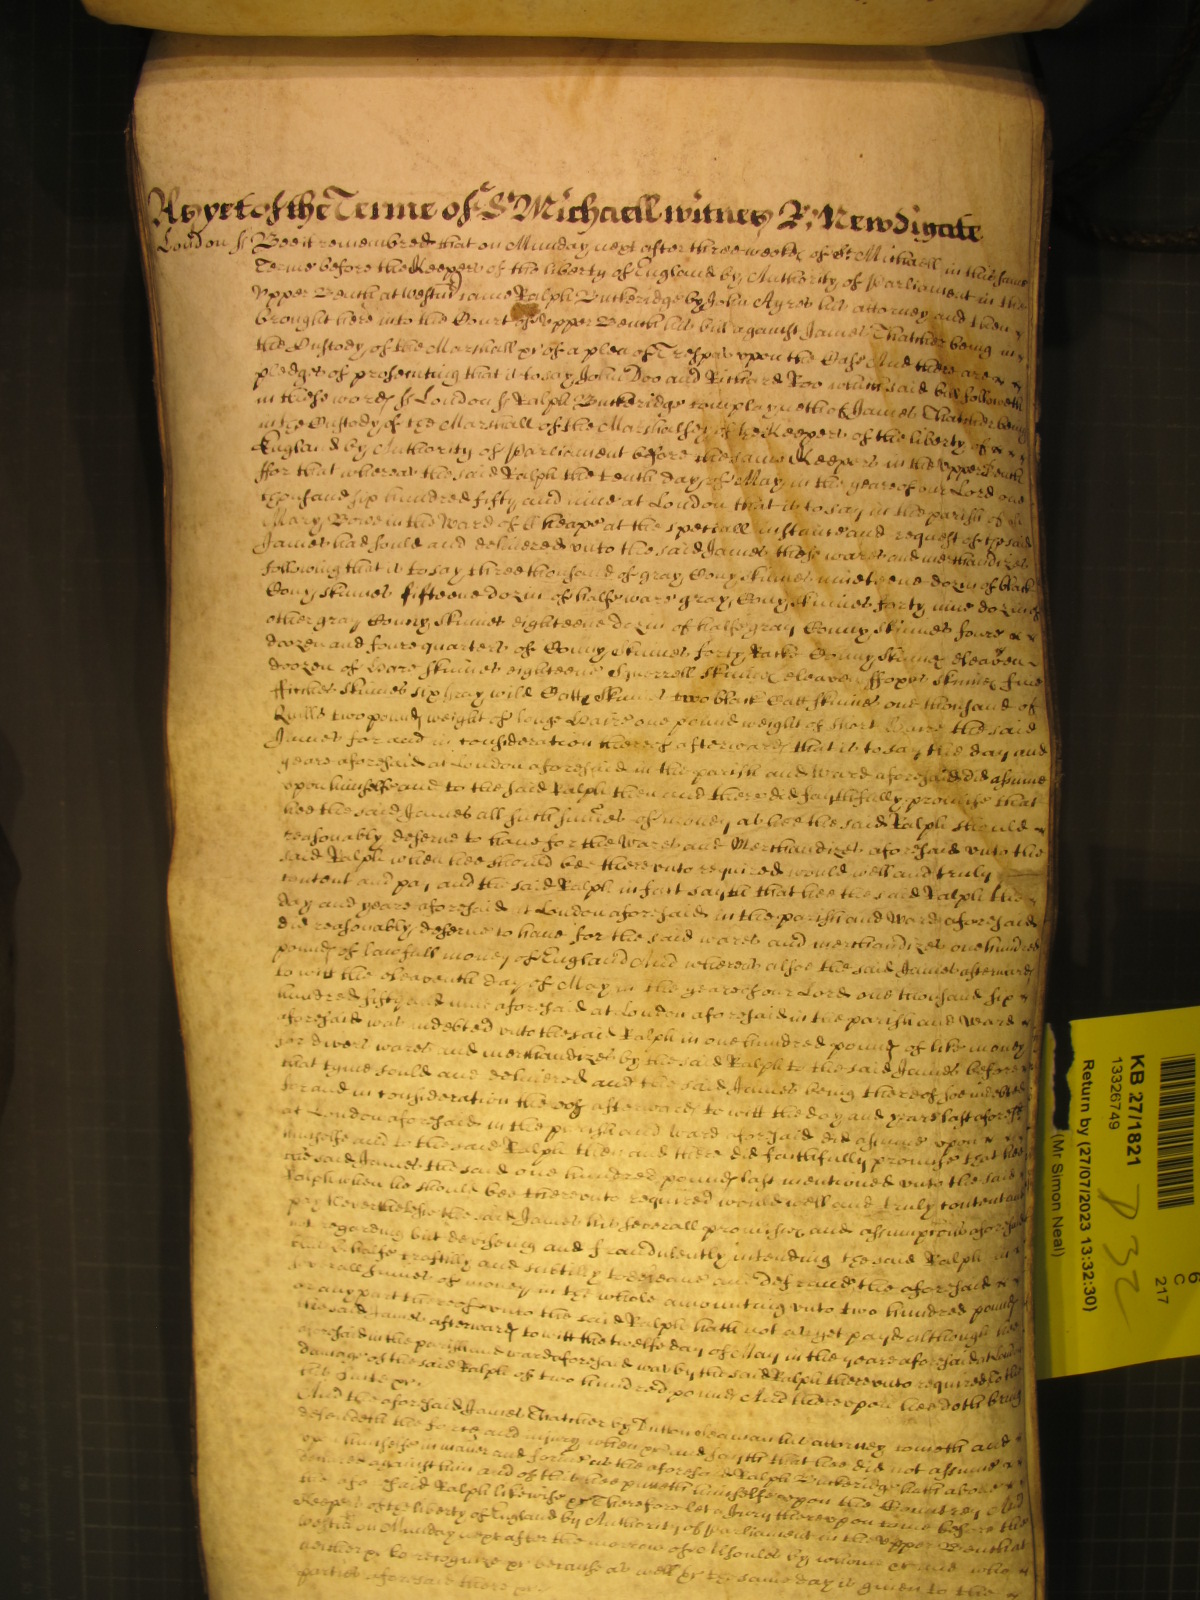 As yet of the Terme of St Michaell witnes R: Newdigate
London ss Bee it remembred that on Munday next after three weekes of St Michaell in this same
Terme before the Keepers of the liberty of England by Authority of Parliament in the
Upper Bench at Westmr came Ralph Butheridge by John Ayres his attorney and then
brought here into the Court of the upper Bench his bill against James Thatcher being in
the Custody of the Marshall &c of a plea of Trespas upon the Case And there are
pledges of prosecuting that is to say John Doo and Richard Roo which said bill followeth
in these words ss London ss Ralph Butheridge complayneth of James Thatcher being
in the Custody of the Marshall of the Marshalsey of the Keepers of the liberty of
England by Authority of Parliament before the same Keepers in the upper Bench
ffor that whereas the said Ralph the tenth day of May in the yeare of our Lord one
thousand six hundred fifty and nine at London that is to say in the parish of St
Mary Bowe in the Ward of Cheape at the speciall instance and request of the said
James had sould and delivered unto the said James these wares and merchandizes
following that is to say three thousand of gray Cony skinnes nineteene dozen of black
Cony skinnes fifteene dozen of halfe ware gray Cony skinnes forty nine dozen of
other gray Conny skinnes eighteene dozen of halfe gray Conny skinnes foure
doozen and foure quarters of Conny skinnes forty Rack Conny skinnes eleaven
doozen of Hare skinnes eighteene Squerrell skinnes eleaven ffoxes skinnes five
ffitches skinnes six gray wild Catt skinnes two black Catt skinnes one thousand of
Quills two pounds weight of longe Haire one pound weight of short Haire the said
James for and in consideration thereof afterwards that is to say the day and
yeare aforesaid at London aforesaid in the parish and Ward aforesaid did assume
upon himselfe and to the said Ralph then and there did faythfully promise that
hee the said James all such summes of money as hee the said Ralph should
reasonably deserve to have for the Wares and Merchandizes aforesaid unto the
said Ralph when hee should bee thereunto required would well and truly
content and pay and the said Ralph in fact sayth that hee the said Ralph the
day and yeare aforesaid at London aforesaid in the parish and Ward aforesaid
did reasonably deserve to have for the said wares and merchandizes one hundred
pounds of lawfull money of England And whereas alsoe the said James afterwards
to witt the eleaventh day of May in the yeare of our Lord one thousand six
hundred fifty and nine aforesaid at London aforesaid in the parish and Ward
aforesaid was indebted unto the said Ralph in one hundred pounds of like money
for divers wares and merchandizes by the said Ralph to the said James before
that tyme sould and delivered and the said James being thereof soe indebted
for and in consideration thereof afterwards to witt the day and yeare last aforesd
at London aforesaid in the parish and Ward aforesaid did assume upon
himselfe and to the said Ralph then and there did faithfully promise that hee
the said James the said one hundred pounds last mentioned unto the said
Ralph when he should bee thereunto required would well and truly content and
pay Neverthelesse the said James his severall promises and assumptions aforesaid
not regarding but deviseing and fraudulently intending the said Ralph in
this behalfe craftily and subtilly to deceave and defraud the aforesaid
severall summes of money in the whole amounting unto two hundred pounds
or any part thereof unto the said Ralph hath not as yet payd although hee
the said James afterwards to witt the twelfe day of May in the yeare aforesaid at London
aforesaid in the parish and ward aforesaid was by the said Ralph thereunto required to the
damage of the said Ralph of two hundred pounds And thereupon hee doth bring
this suite &c.
And the aforesaid James Thatcher by Anthony Seaman his attorney cometh and
defendeth the force and injury when &c and sayth that hee did not assume
upon himselfe in maner and forme as the aforesaid Ralph Butheridge hath above
declared against him and of this hee putteth himselfe upon the Countrey And
the aforesaid Ralph likewise &c Therefore let a Jury thereupon come before the
Keepers of the liberty of England by Authority of Parliament in the Upper Bench at
Westmr on Munday next after the morrow of All soules by whom &c and who
neither &c to recognize &c because as well &c the same day is given to the
parties aforesaid there &c
KB 27/1821
13326749
Return by (27/07/2023 13:32:30)
(Mr Simon Neal)
6
C
217
P 32